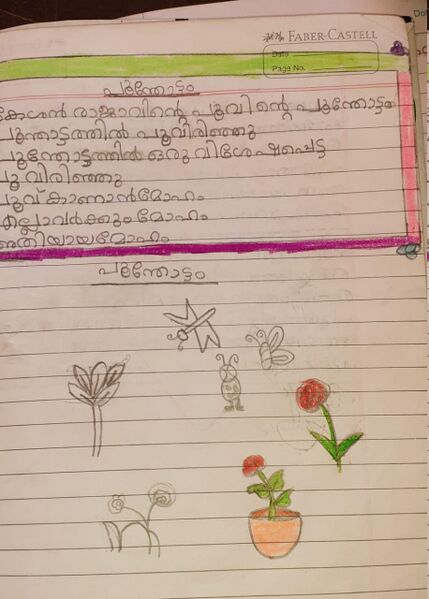 FABER-CASTELL
Date
Page No.
പൂന്തോട്ടം
കേശൻ രാജാവിന്റെ പൂവിന്റെ പൂന്തോട്ടം
പൂന്തോട്ടത്തിൽ പൂവിരിഞ്ഞു
പൂന്തോട്ടത്തിൽ ഒരു വിശേഷപ്പെട്ട
പൂവിരിഞ്ഞു
പൂവ് കാണാൻ മോഹം
എല്ലാവർക്കും മോഹം
അതിയായ മോഹം
പൂന്തോട്ടം